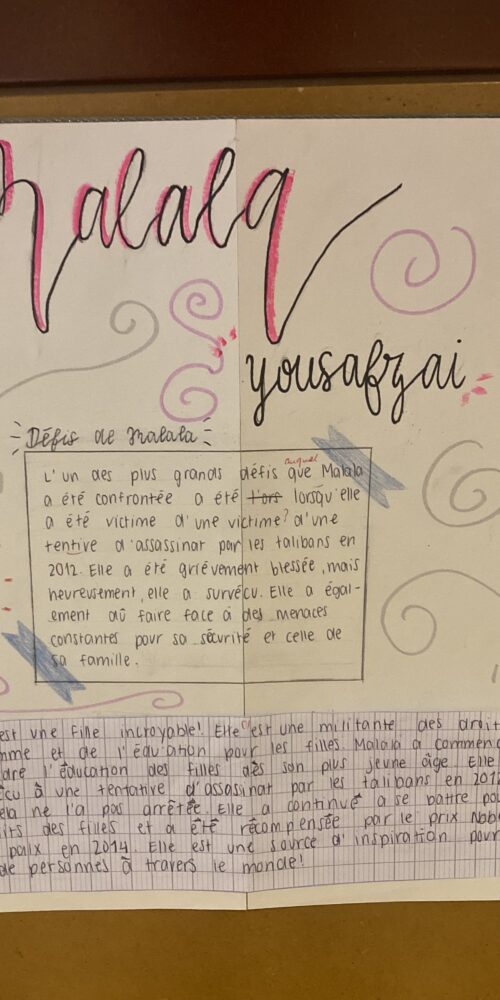 Malala
yousafzai
Défis de Malala
auquel
L'un des plus grands défis que Malala
a été confrontée a été lors lorsqu'elle
a été victime d'une victime? d'une
tentive d'assassinat par les talibans en
2012. Elle a été grièvement blessée, mais
heureusement, elle a survécu. Elle a égal-
ement dû faire face à des menaces
constantes pour sa sécurité et celle de
sa famille.
est une fille incroyable! Elle est une militante des droit
mme et de l'éducation pour les filles. Malala a commenc
dre l'éducation des filles dès son plus jeune âge. Elle
écu à une tentative d'assasinat par les talibans en 2012
ela ne l'a pas arrêtée. Elle a continué a se battre pou
its des filles et a été récompensée par le prix Nob
paix en 2014. Elle est une source d'inspiration pour
de personnes à travers le monde!